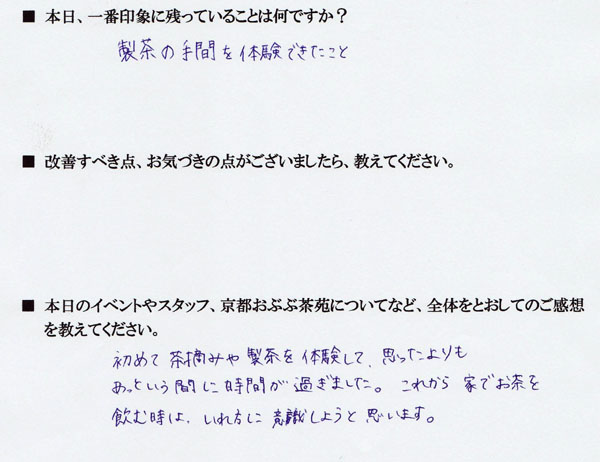 ■ 本日、一番印象に残っていることは何ですか？
製茶の手間を体験できたこと
■ 改善すべき点、お気づきの点がございましたら、教えてください。
■ 本日のイベントやスタッフ、京都おぶぶ茶苑についてなど、全体をとおしてのご感想
を教えてください。
初めて茶摘みや製茶を体験して、思ったよりも
あっという間に時間が過ぎました。これから家でお茶を
飲む時は、いれ方に意識しようと思います。